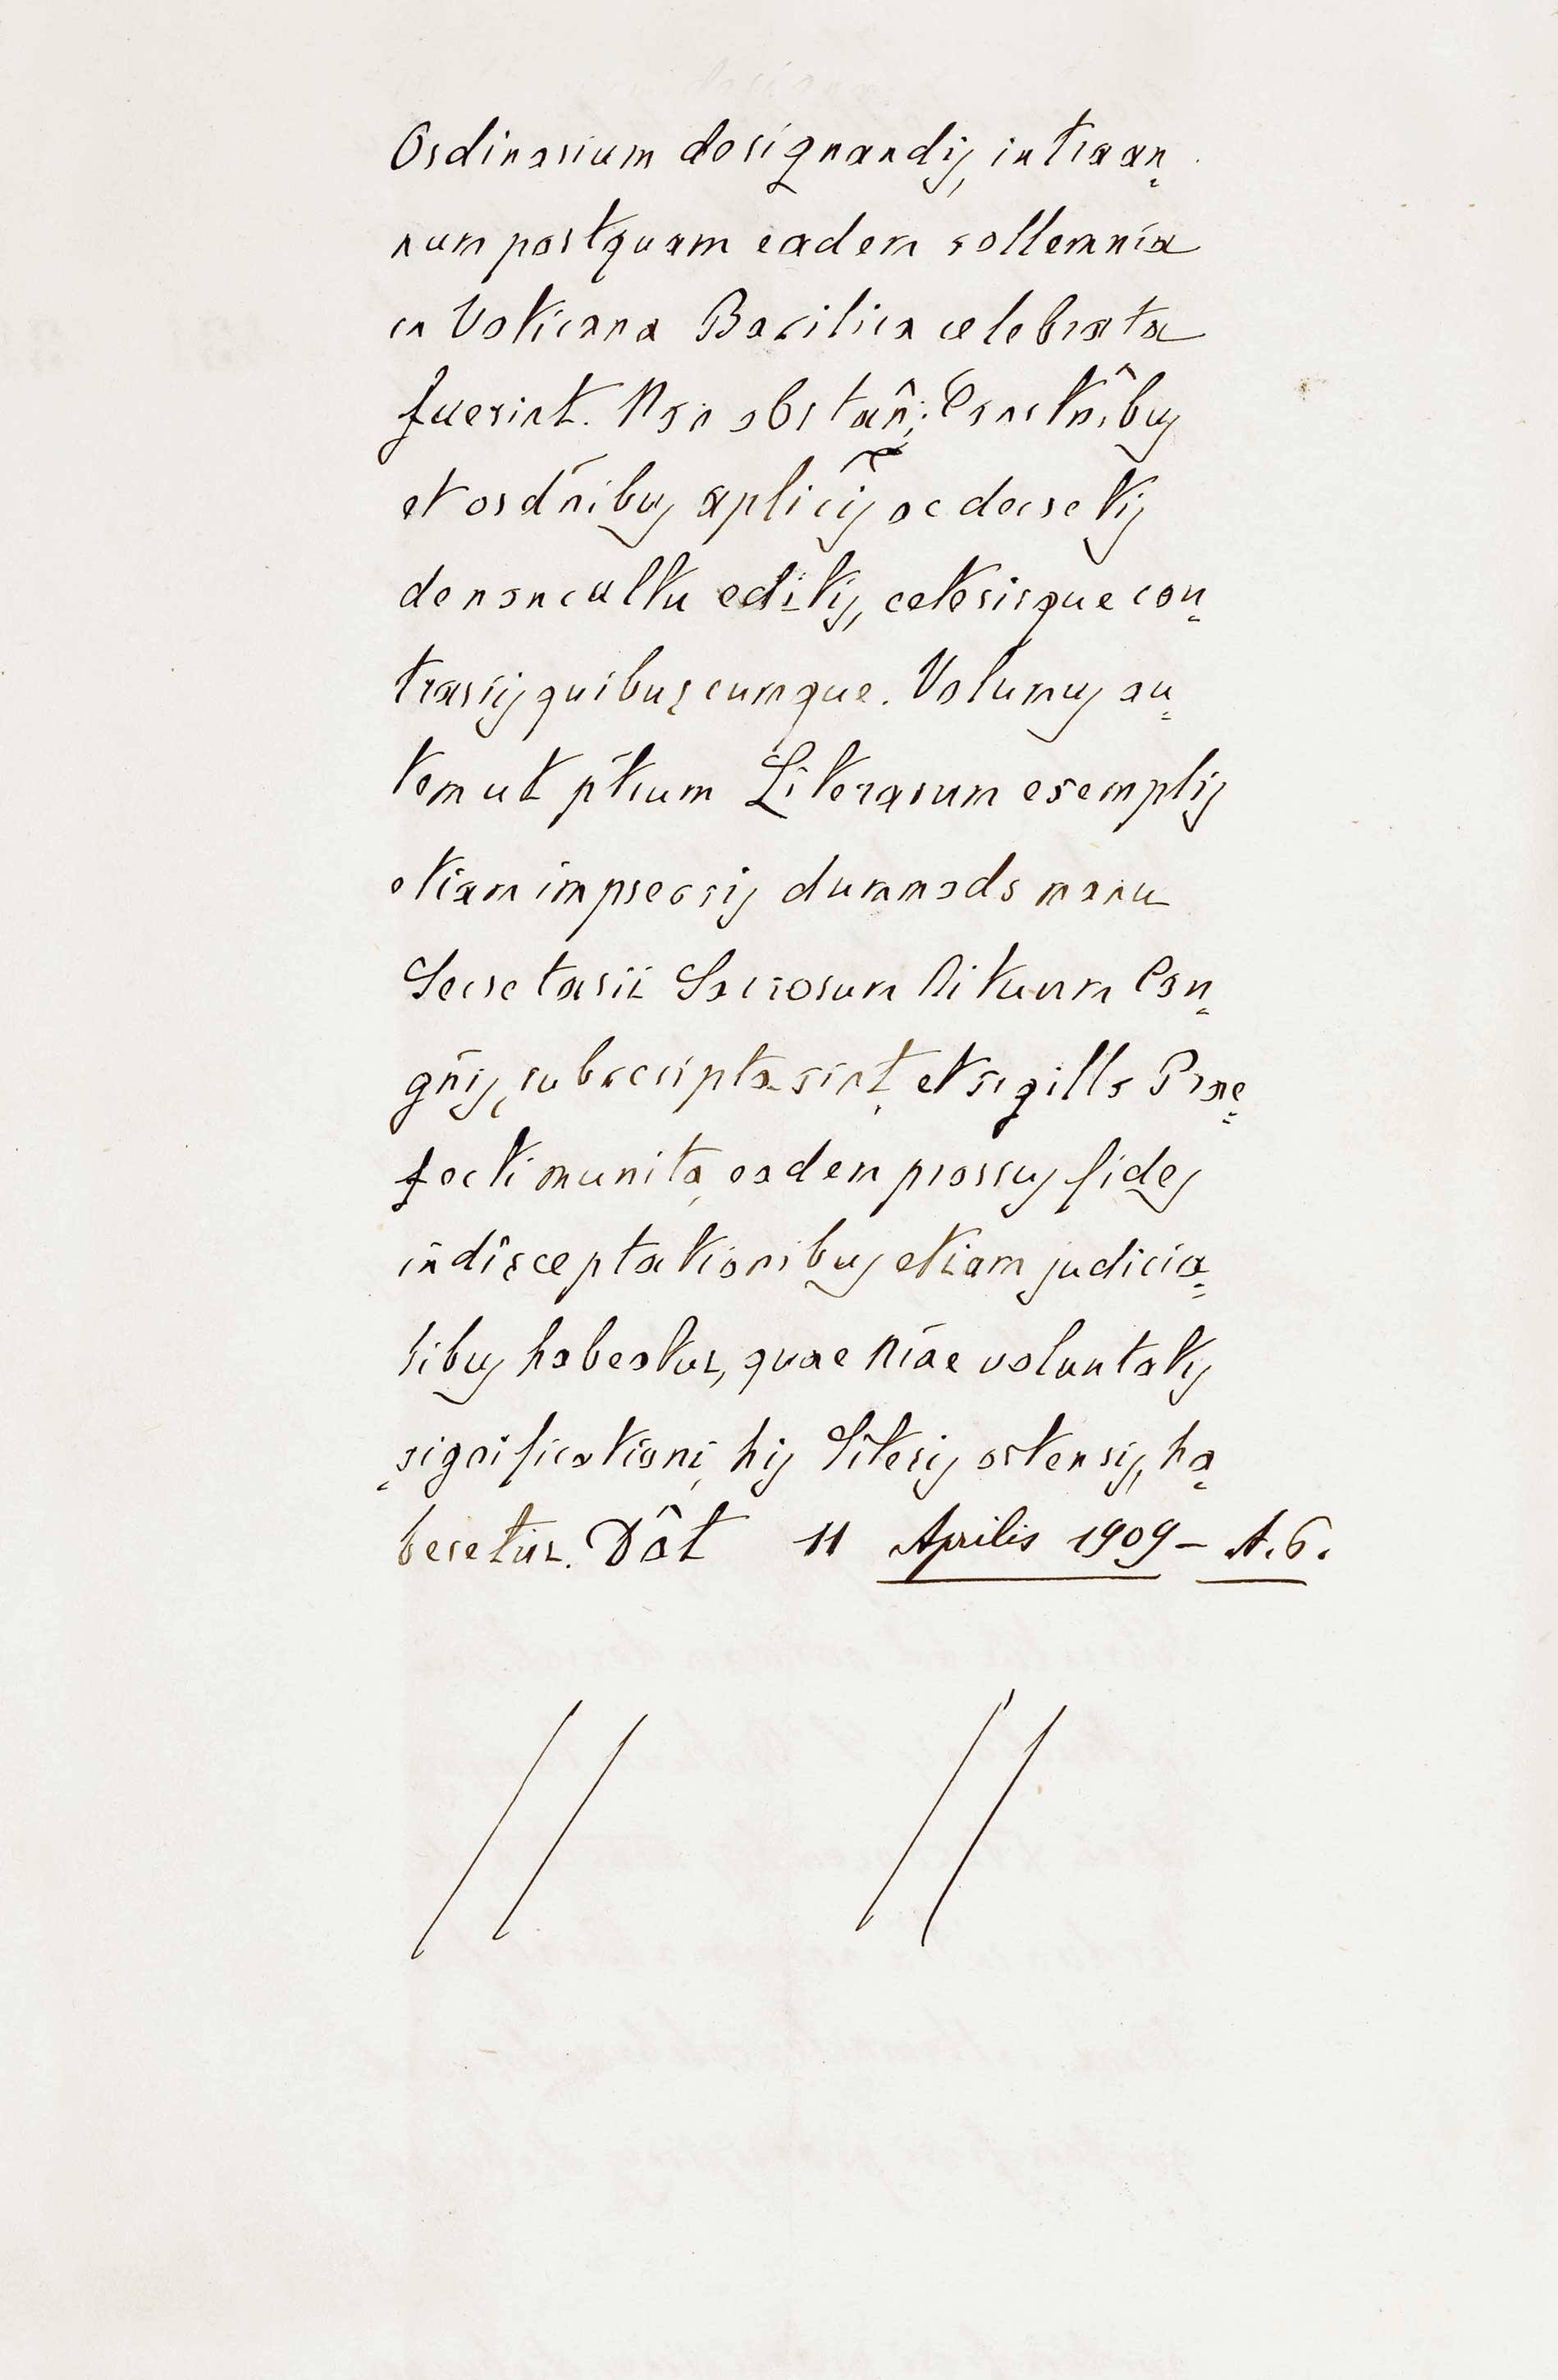 Ordinarium designandis, intra an=
num postquam eadem sollemnia
in Vaticana Basilica celebrata
fuerint. Non obstañ: Constñibus
et ordñibus aplicis ac decretis
de non cultu editis, ceterisque con=
trariis quibuscumque. Volumus au=
tem ut p̃tium Literarum exemplis
etiam impressis dummodo manu
Secretarii Sacrorum Rituum Con=
gñis subscripta sint, et sigillo Prae=
fecti munita, eadem prorsus fides
in disceptationibus etiam judicia=
libus habeatur, quae ñrae voluntatis
significationi, his literis ostensis, ha=
beretur. Dât 11 Aprilis 1909 – A. 6.